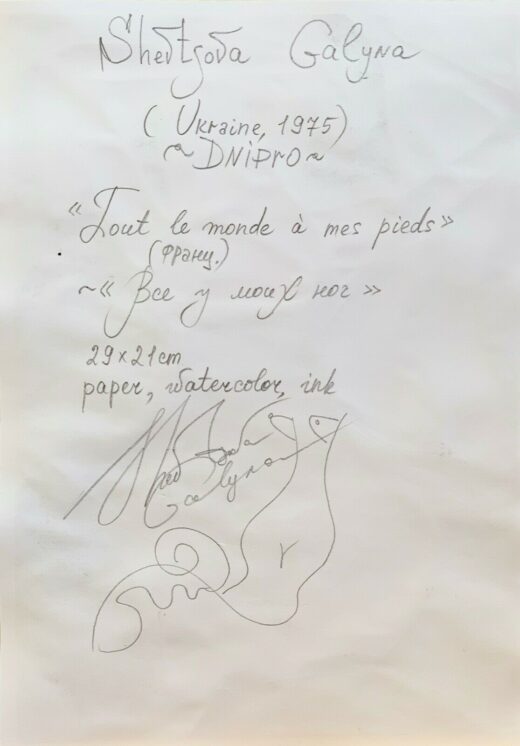 Shevtsova Galyna
(Ukraine, 1975)
~DNiPrO~
«Tout le monde à mes pieds»
(Франц.)
~«Все у моих ног»
29×21cm
paper, watercolor, ink
Shevtsova
Galyna